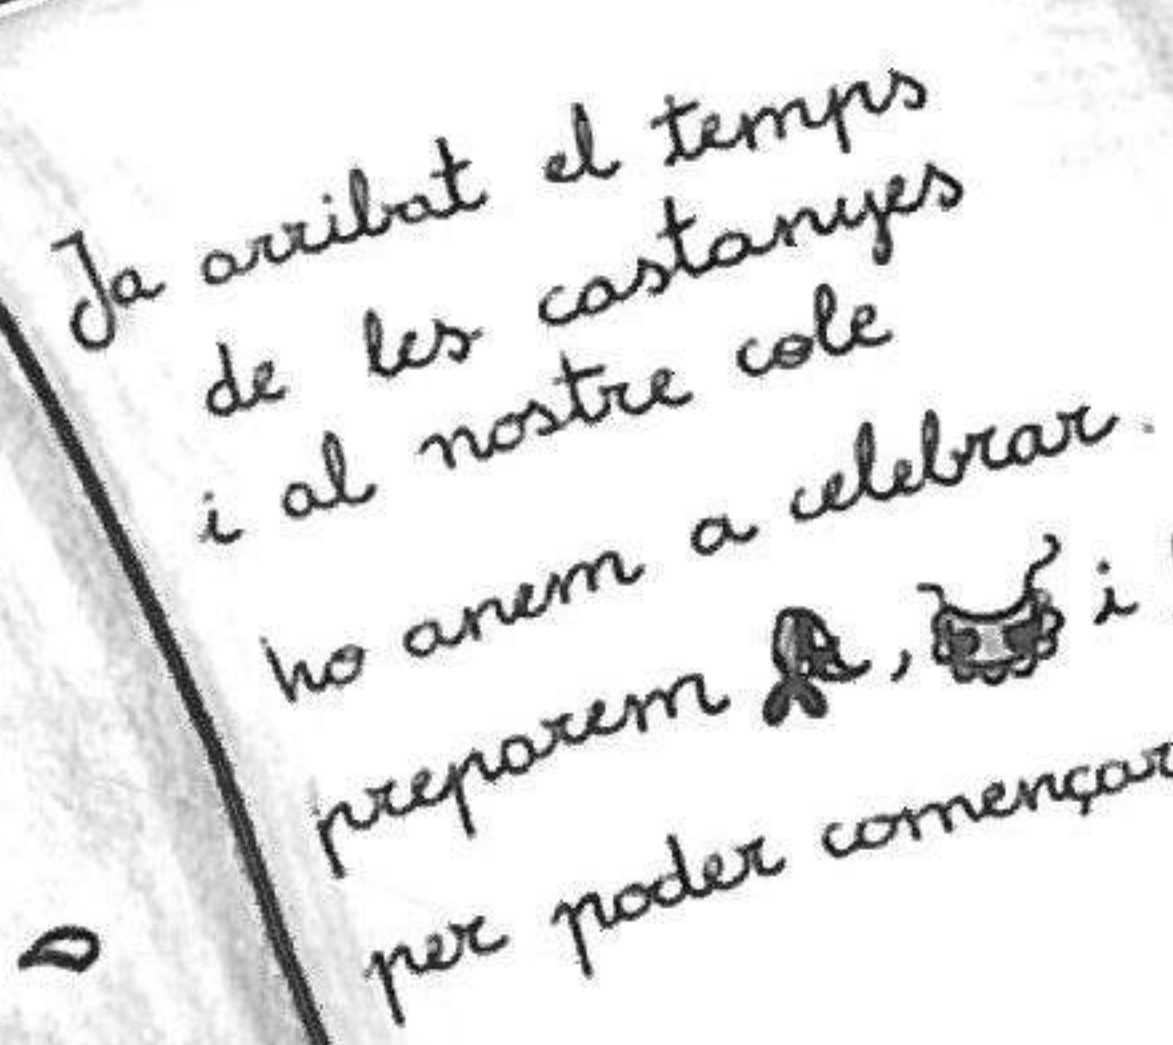 Ja arribat el temps
de les castanyes
i al nostre cole
ho anem a celebrar.
preparem , i
per poder començar